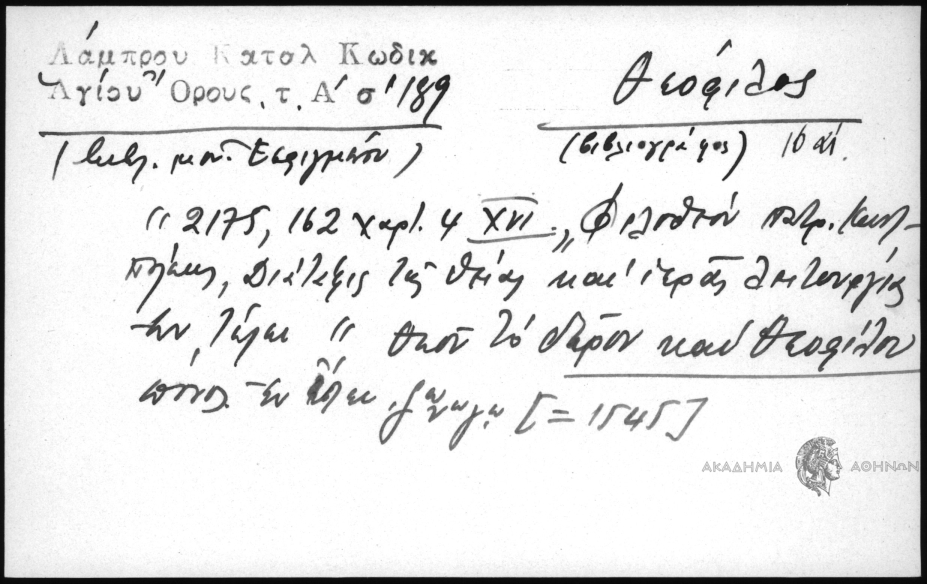 Λάμπρου Καταλ Κωδικ
Αγίου Όρους, τ. Α' σ' 189
Θεόφιλος
(Βιβλ. μον. Εσφιγμένου)
(βιβλιογράφος) 16 αἰ.
" 2175, 162 χαρτ. 4 XVI. „ Φιλοθέου πατρ. Κωνσ-
πόλεως, Διάταξις τῆς θείας καὶ ἱερᾶς λειτουργίας
Ἐν τέλει " Θεοῦ τὸ δῶρον καὶ Θεοφίλου
πόνος. Ἐν ἔτει [=1545]
ΑΚΑΔΗΜΙΑ ΑΘΗΝΩΝ